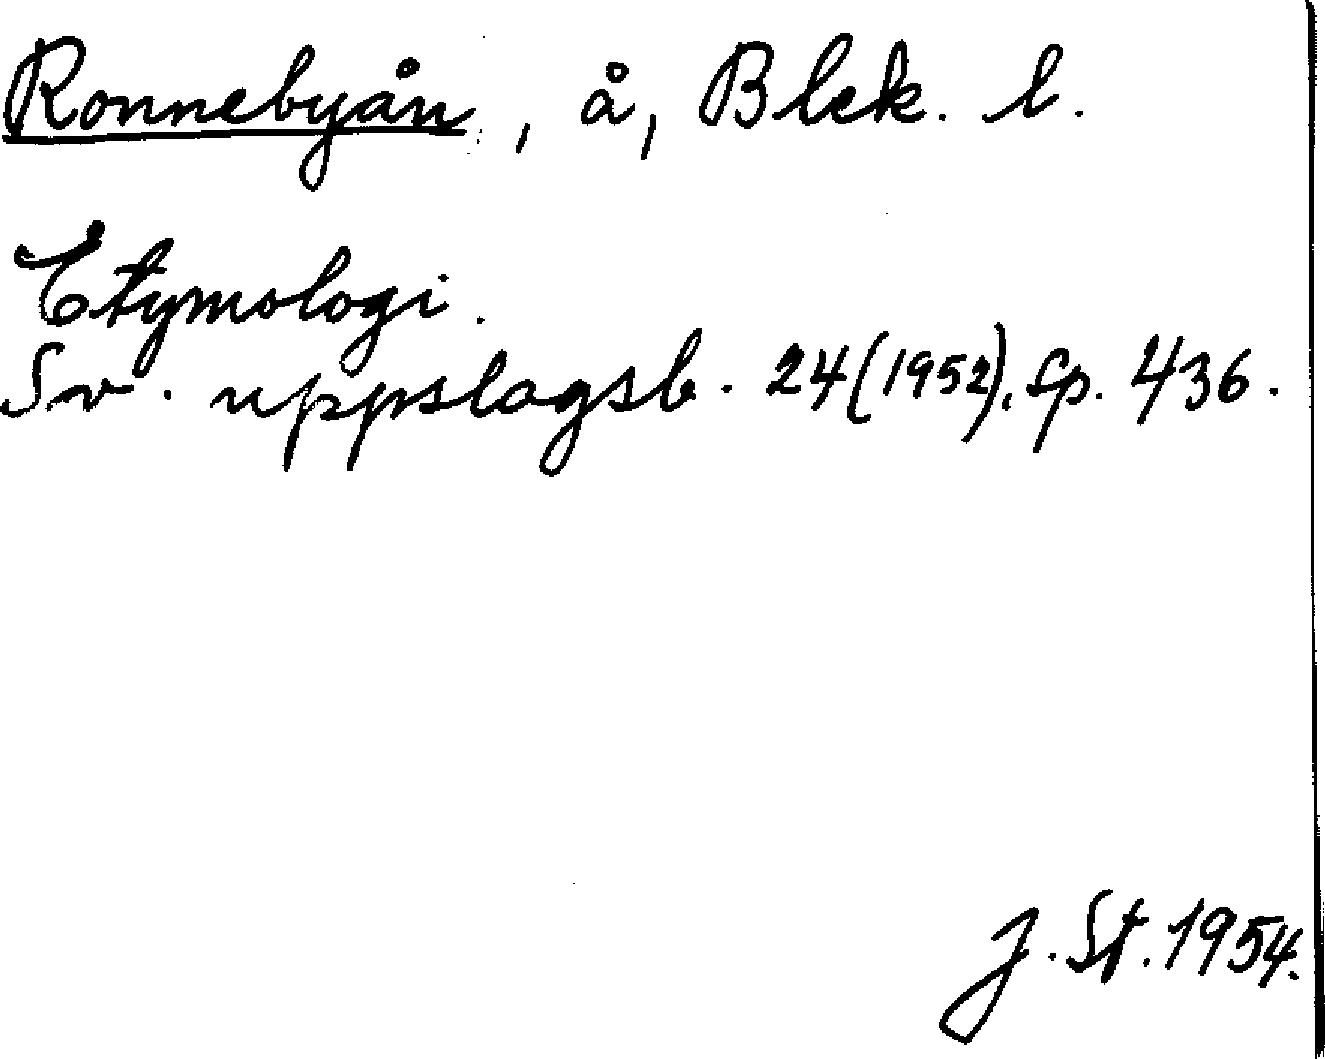 Ronnebyån, å, Blek. l.
Etymologi.
Sv. uppslagsb. 24 (1952), sp. 436.
J. St. 1954.